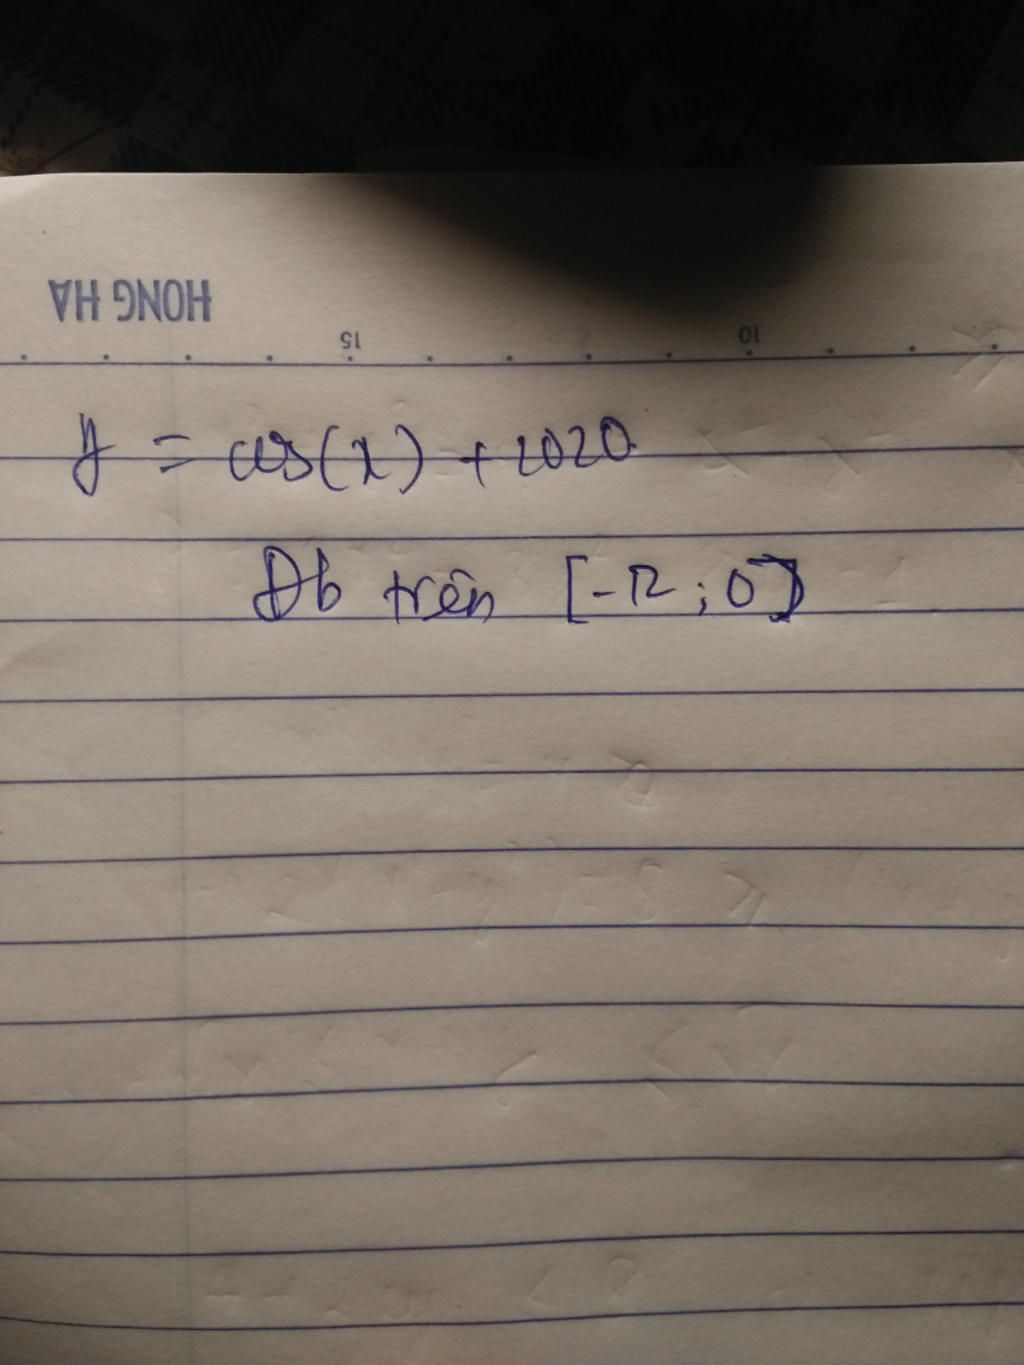 HONG HA
15 10
y = cos(x) + 2020
Đb trên [-π; 0]